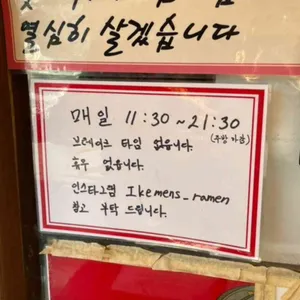 열심히 살겠습니다
매일 11:30~21:30
(주방 마감)
브레이크 타임 없습니다.
휴무 없습니다.
인스타그램 Ikemens_ramen
참고 부탁 드립니다.